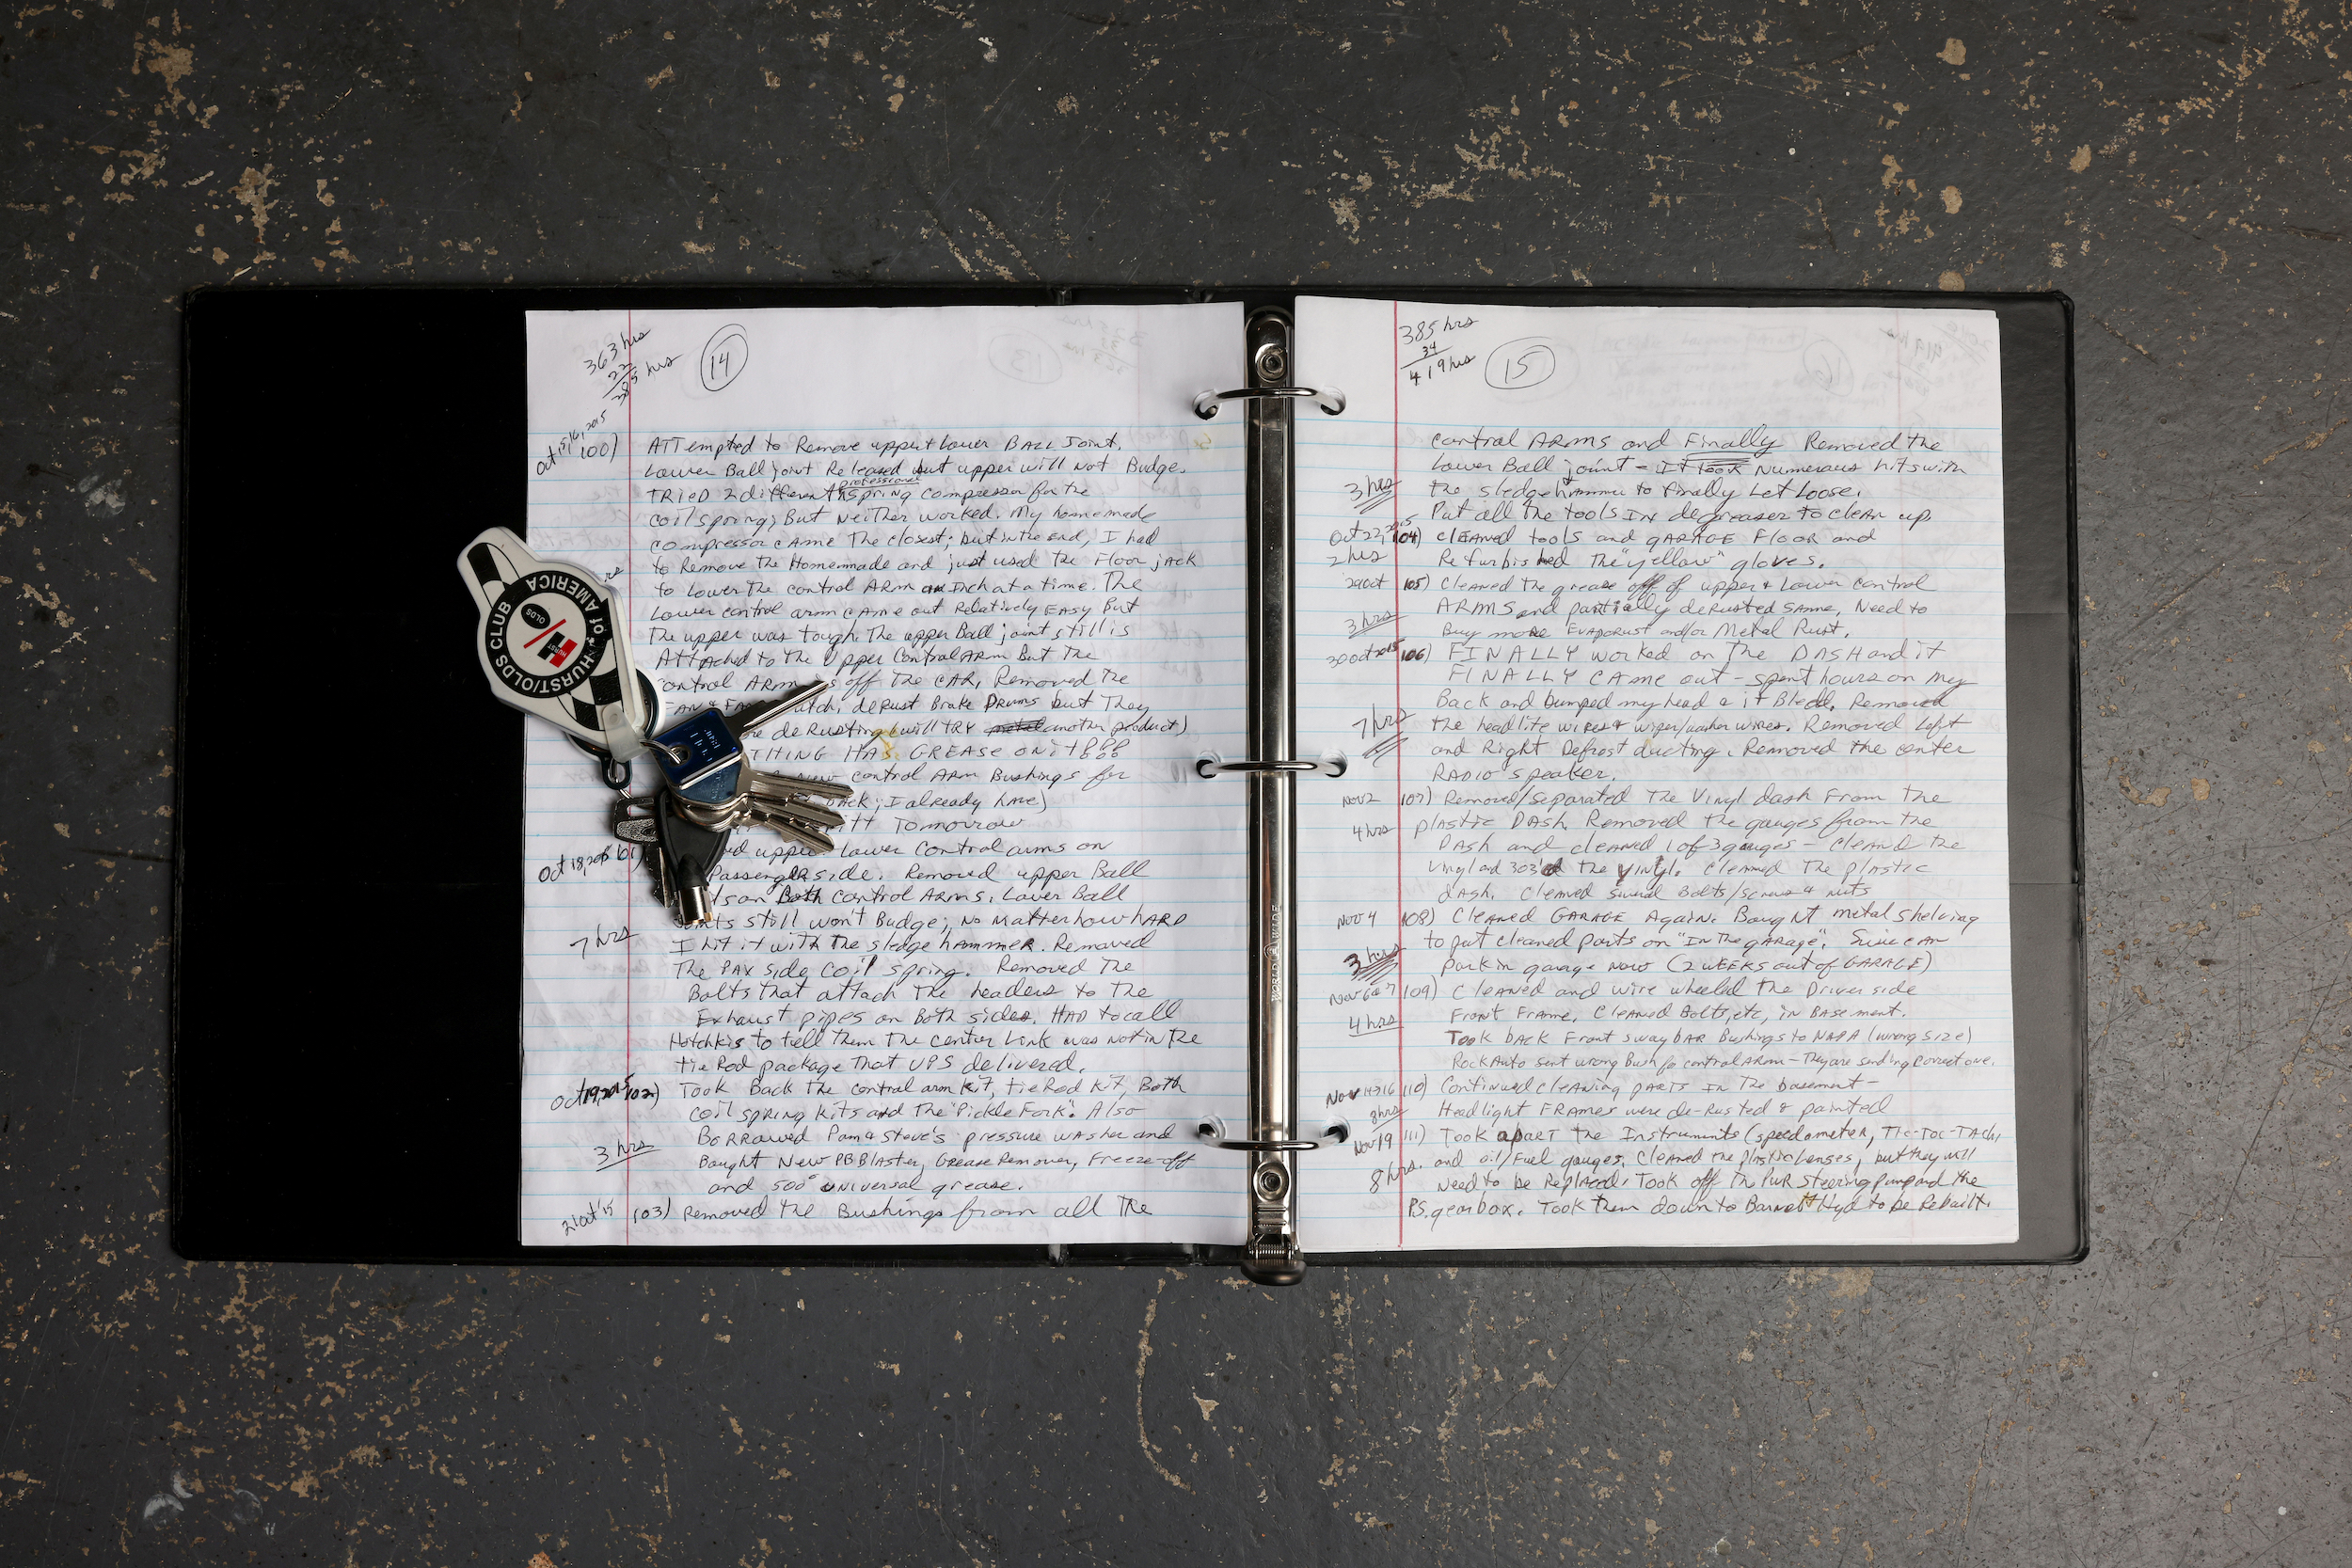 363 hrs
22
385 hrs
14
Oct 15,16, 2015
100) ATTempted to Remove upper & Lower BALL Joint.
Lower Ball joint Released but upper will not Budge.
professional
TRIED 2 different spring compressor for the
coil spring; But Neither worked. My homemade
compressor cAme The closest; but in the end, I had
to Remove the Homemade and just used the Floor jack
to Lower the control ARM an Inch at a time. The
Lower control arm cAme out Relatively EASY But
the upper was tough. The upper Ball joint still is
Attached to the Upper Control ARM But the
control ARM is off The CAR. Removed the
derust Brake Drums but They
deRusting & will TRY another product)
THING HAS GREASE ON it!!!
New control ARM Bushings for
back; I already have)
Tomorrow
hrs
HURST/OLDS CLUB of AMERICA
HURST
OLDS
Oct 18, 2015 101)
upper Lower control arms on
Passenger side. Removed upper Ball
on Both control ARMS. Lower Ball
Joints still won't Budge; No matter how hARD
7 hrs
I hit it with the sledge hammer. Removed
The PAX side coil spring. Removed the
Bolts that attach the headers to the
Exhaust pipes on Both sides. HAD to call
Hotchkis to tell them The center Link was not in the
tie Rod package that UPS delivered.
Oct 19, 2015 102) Took Back the control arm kit, tie Rod kit, Both
coil spring kits and the "Pickle Fork". Also
3 hrs
BoRRowed Pam & Steve's pressure washer and
Bought New PBBlaster, Grease Remover, Freeze-off
and 500° universal grease.
21 Oct '15 103) Removed the Bushings from all the
385 hrs
34
419 hrs
15
control ARMS and Finally Removed the
Lower Ball joint - It took Numerous hits with
3 hrs
the sledgehammer to finally Let Loose.
Put all the tools IN degreaser to clean up.
Oct 22, 2015 104) cLEANed tools and gARAGE FLOOR and
2 hrs
Refurbished The "yellow" gloves.
29 Oct 105) Cleaned the grease off of upper & Lower control
ARMS and partially deRusted same. Need to
3 hrs
Buy more EvapoRust and/or Metal Rust.
30 Oct 2015 106) FINALLY worked on The DASH and it
FINALLY CAme out - spent hours on my
Back and bumped my head & it Bled. Removed
7 hrs
the headlite wires & wiper/washer wires. Removed Left
and Right Defrost ducting. Removed the center
RADIO speaker.
Nov 2 107) Removed/separated The Vinyl dash From the
4 hrs
plastic DASH. Removed the gauges from the
DASH and cleaned 1 of 3 gauges - cleaned the
vinyl and 303'd the vinyl. Cleaned The plastic
dash. Cleaned Bolts/screws & nuts
Nov 4 108) Cleaned GARAGE Again. Bought metal shelving
to put cleaned parts on "In The gARage". Susie can
3 hrs
park in garage Now (2 WEEKS out of GARAGE)
Nov 6 & 7 109) CLEANed and wire wheeled the Driver side
4 hrs
Front Frame. Cleaned Bolts, etc, in Basement.
Took back Front swaybAR Bushings to NAPA (wrong size)
RockAuto sent wrong Bush for control ARM - They are sending correct one.
Nov 110) Continued cleaning pARTS IN The basement -
8 hrs
Headlight FRAmes were de-Rusted & painted
Nov 19 111) Took apART the Instruments (speedometer, Tic-Toc-TAch,
8 hrs.
and oil/Fuel gauges. Cleaned the plastic lenses, but they will
need to be Replaced. Took off The PWR Steering pump and the
P.S. gearbox. Took them down to Barnett Hyd to be Rebuilt.
WORLD WIDE